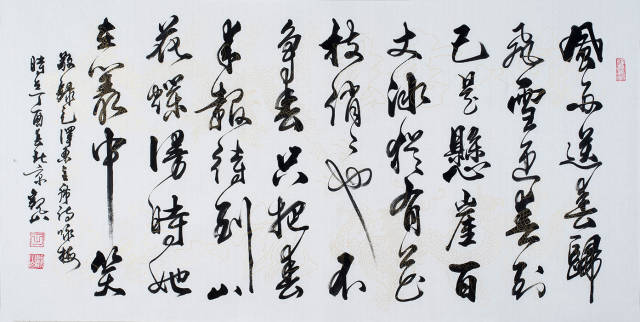 風雨送春歸
飛雪迎春到
已是懸崖百
丈冰猶有花
枝俏〻也不
争春只把春
来報待到山
花爛漫時她
在叢中笑
敬録毛澤東主席詩咏梅
時在丁酉春於京